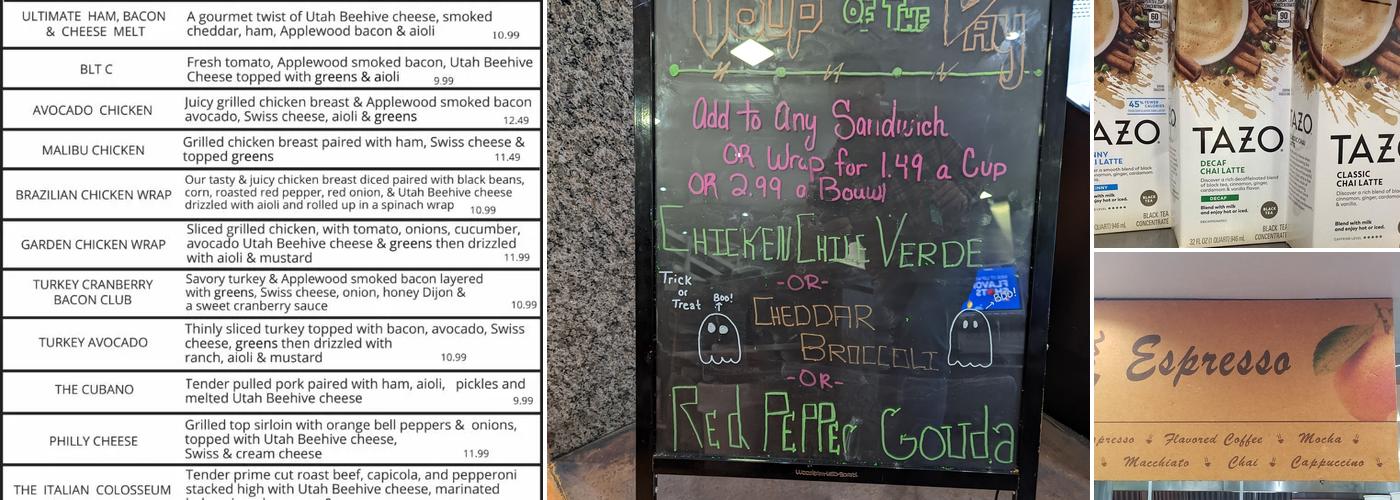 ULTIMATE HAM, BACON
& CHEESE MELT
A gourmet twist of Utah Beehive cheese, smoked
cheddar, ham, Applewood bacon & aioli
10.99
BLT C
Fresh tomato, Applewood smoked bacon, Utah Beehive
Cheese topped with greens & aioli
9.99
AVOCADO CHICKEN
Juicy grilled chicken breast & Applewood smoked bacon
avocado, Swiss cheese, aioli & greens
12.49
MALIBU CHICKEN
Grilled chicken breast paired with ham, Swiss cheese &
topped greens
11.49
BRAZILIAN CHICKEN WRAP
Our tasty & juicy chicken breast diced paired with black beans,
corn, roasted red pepper, red onion, & Utah Beehive cheese
drizzled with aioli and rolled up in a spinach wrap
10.99
GARDEN CHICKEN WRAP
Sliced grilled chicken, with tomato, onions, cucumber,
avocado Utah Beehive cheese & greens then drizzled
with aioli & mustard
11.99
TURKEY CRANBERRY
BACON CLUB
Savory turkey & Applewood smoked bacon layered
with greens, Swiss cheese, onion, honey Dijon &
a sweet cranberry sauce
10.99
TURKEY AVOCADO
Thinly sliced turkey topped with bacon, avocado, Swiss
cheese, greens then drizzled with
ranch, aioli & mustard
10.99
THE CUBANO
Tender pulled pork paired with ham, aioli, pickles and
melted Utah Beehive cheese
9.99
PHILLY CHEESE
Grilled top sirloin with orange bell peppers & onions,
topped with Utah Beehive cheese,
Swiss & cream cheese
11.99
THE ITALIAN COLOSSEUM
Tender prime cut roast beef, capicola, and pepperoni
stacked high with Utah Beehive cheese, marinated
OF THE DAY
Add to Any Sandwich
OR Wrap for 1.49 a Cup
OR 2.99 a Bowl
CHICKEN CHILE VERDE
-OR-
Trick
or
Treat
Boo!
CHEDDAR
BROCCOLI
Boo!
-OR-
Red PEPPer Gouda
60
90
45% FEWER
CALORIES
TAZO
CHAI LATTE
BLACK TEA
CONCENTRATE
TAZO
DECAF
CHAI LATTE
Discover a rich decaffeinated blend
of black tea, cinnamon, ginger,
cardamom & vanilla flavor.
DECAF
Blend with milk
and enjoy hot or iced.
BLACK
TEA
32 FL OZ (1 QUART) 946 mL
CLASSIC
CHAI LATTE
Blend with milk
and enjoy hot or iced.
Espresso
Flavored Coffee
Mocha
Macchiato
Chai
Cappuccino